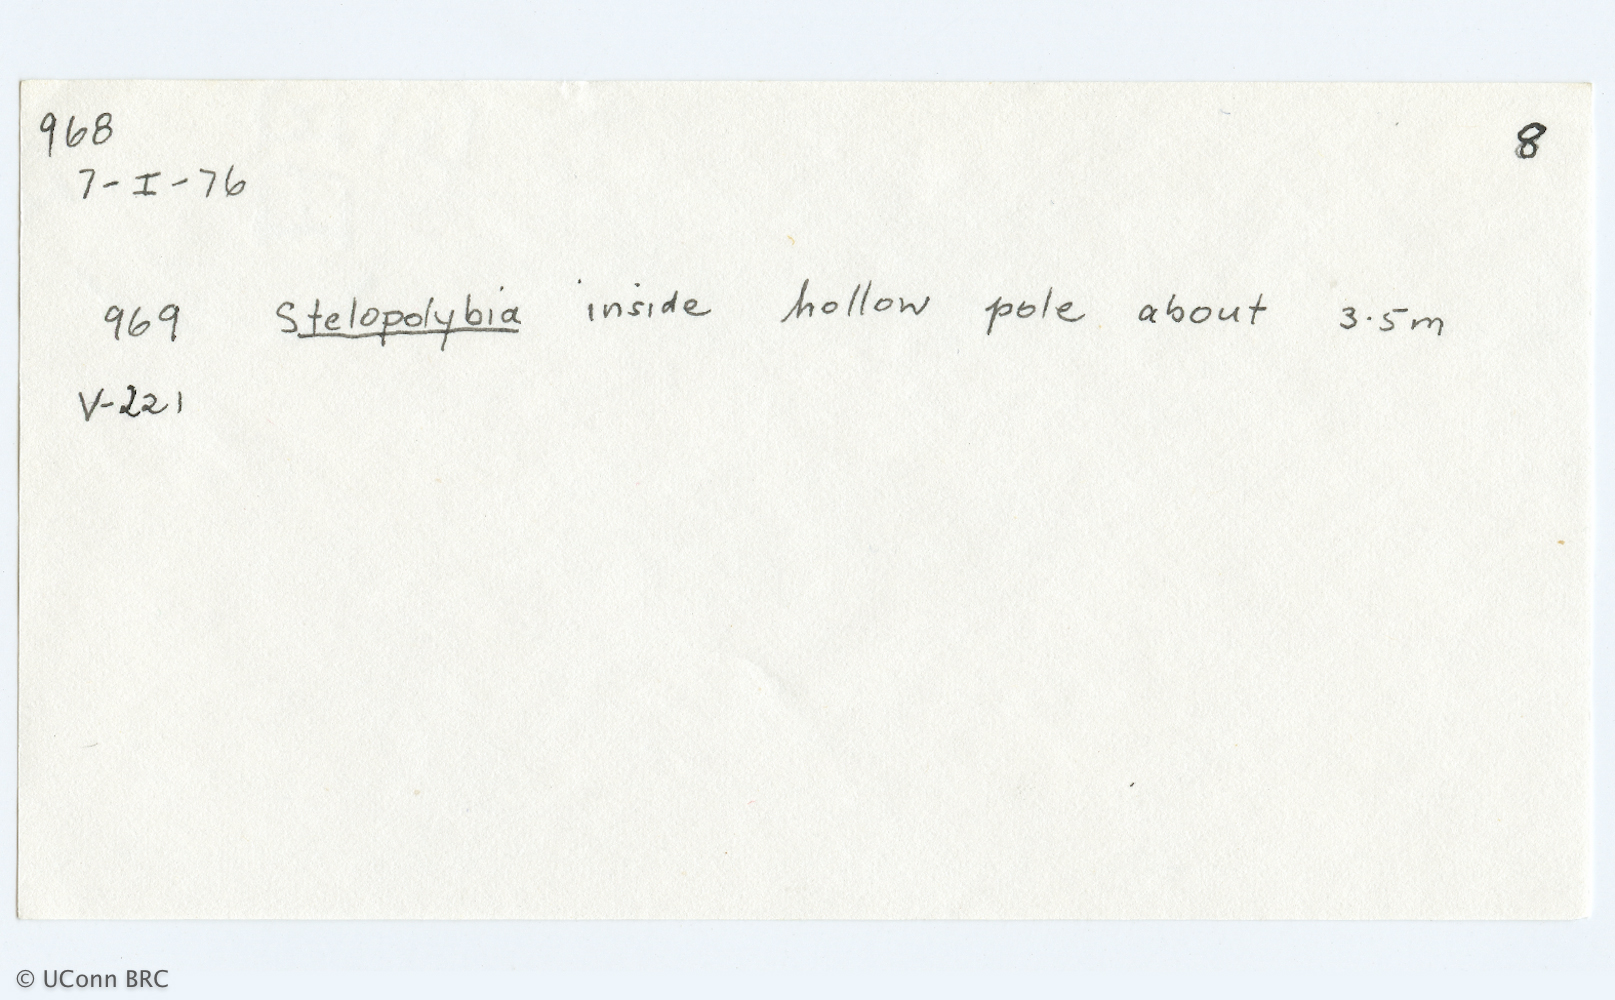 968
8
7-I-76
969 Stelopolybia inside hollow pole about 3.5m
V-221
© UConn BRC